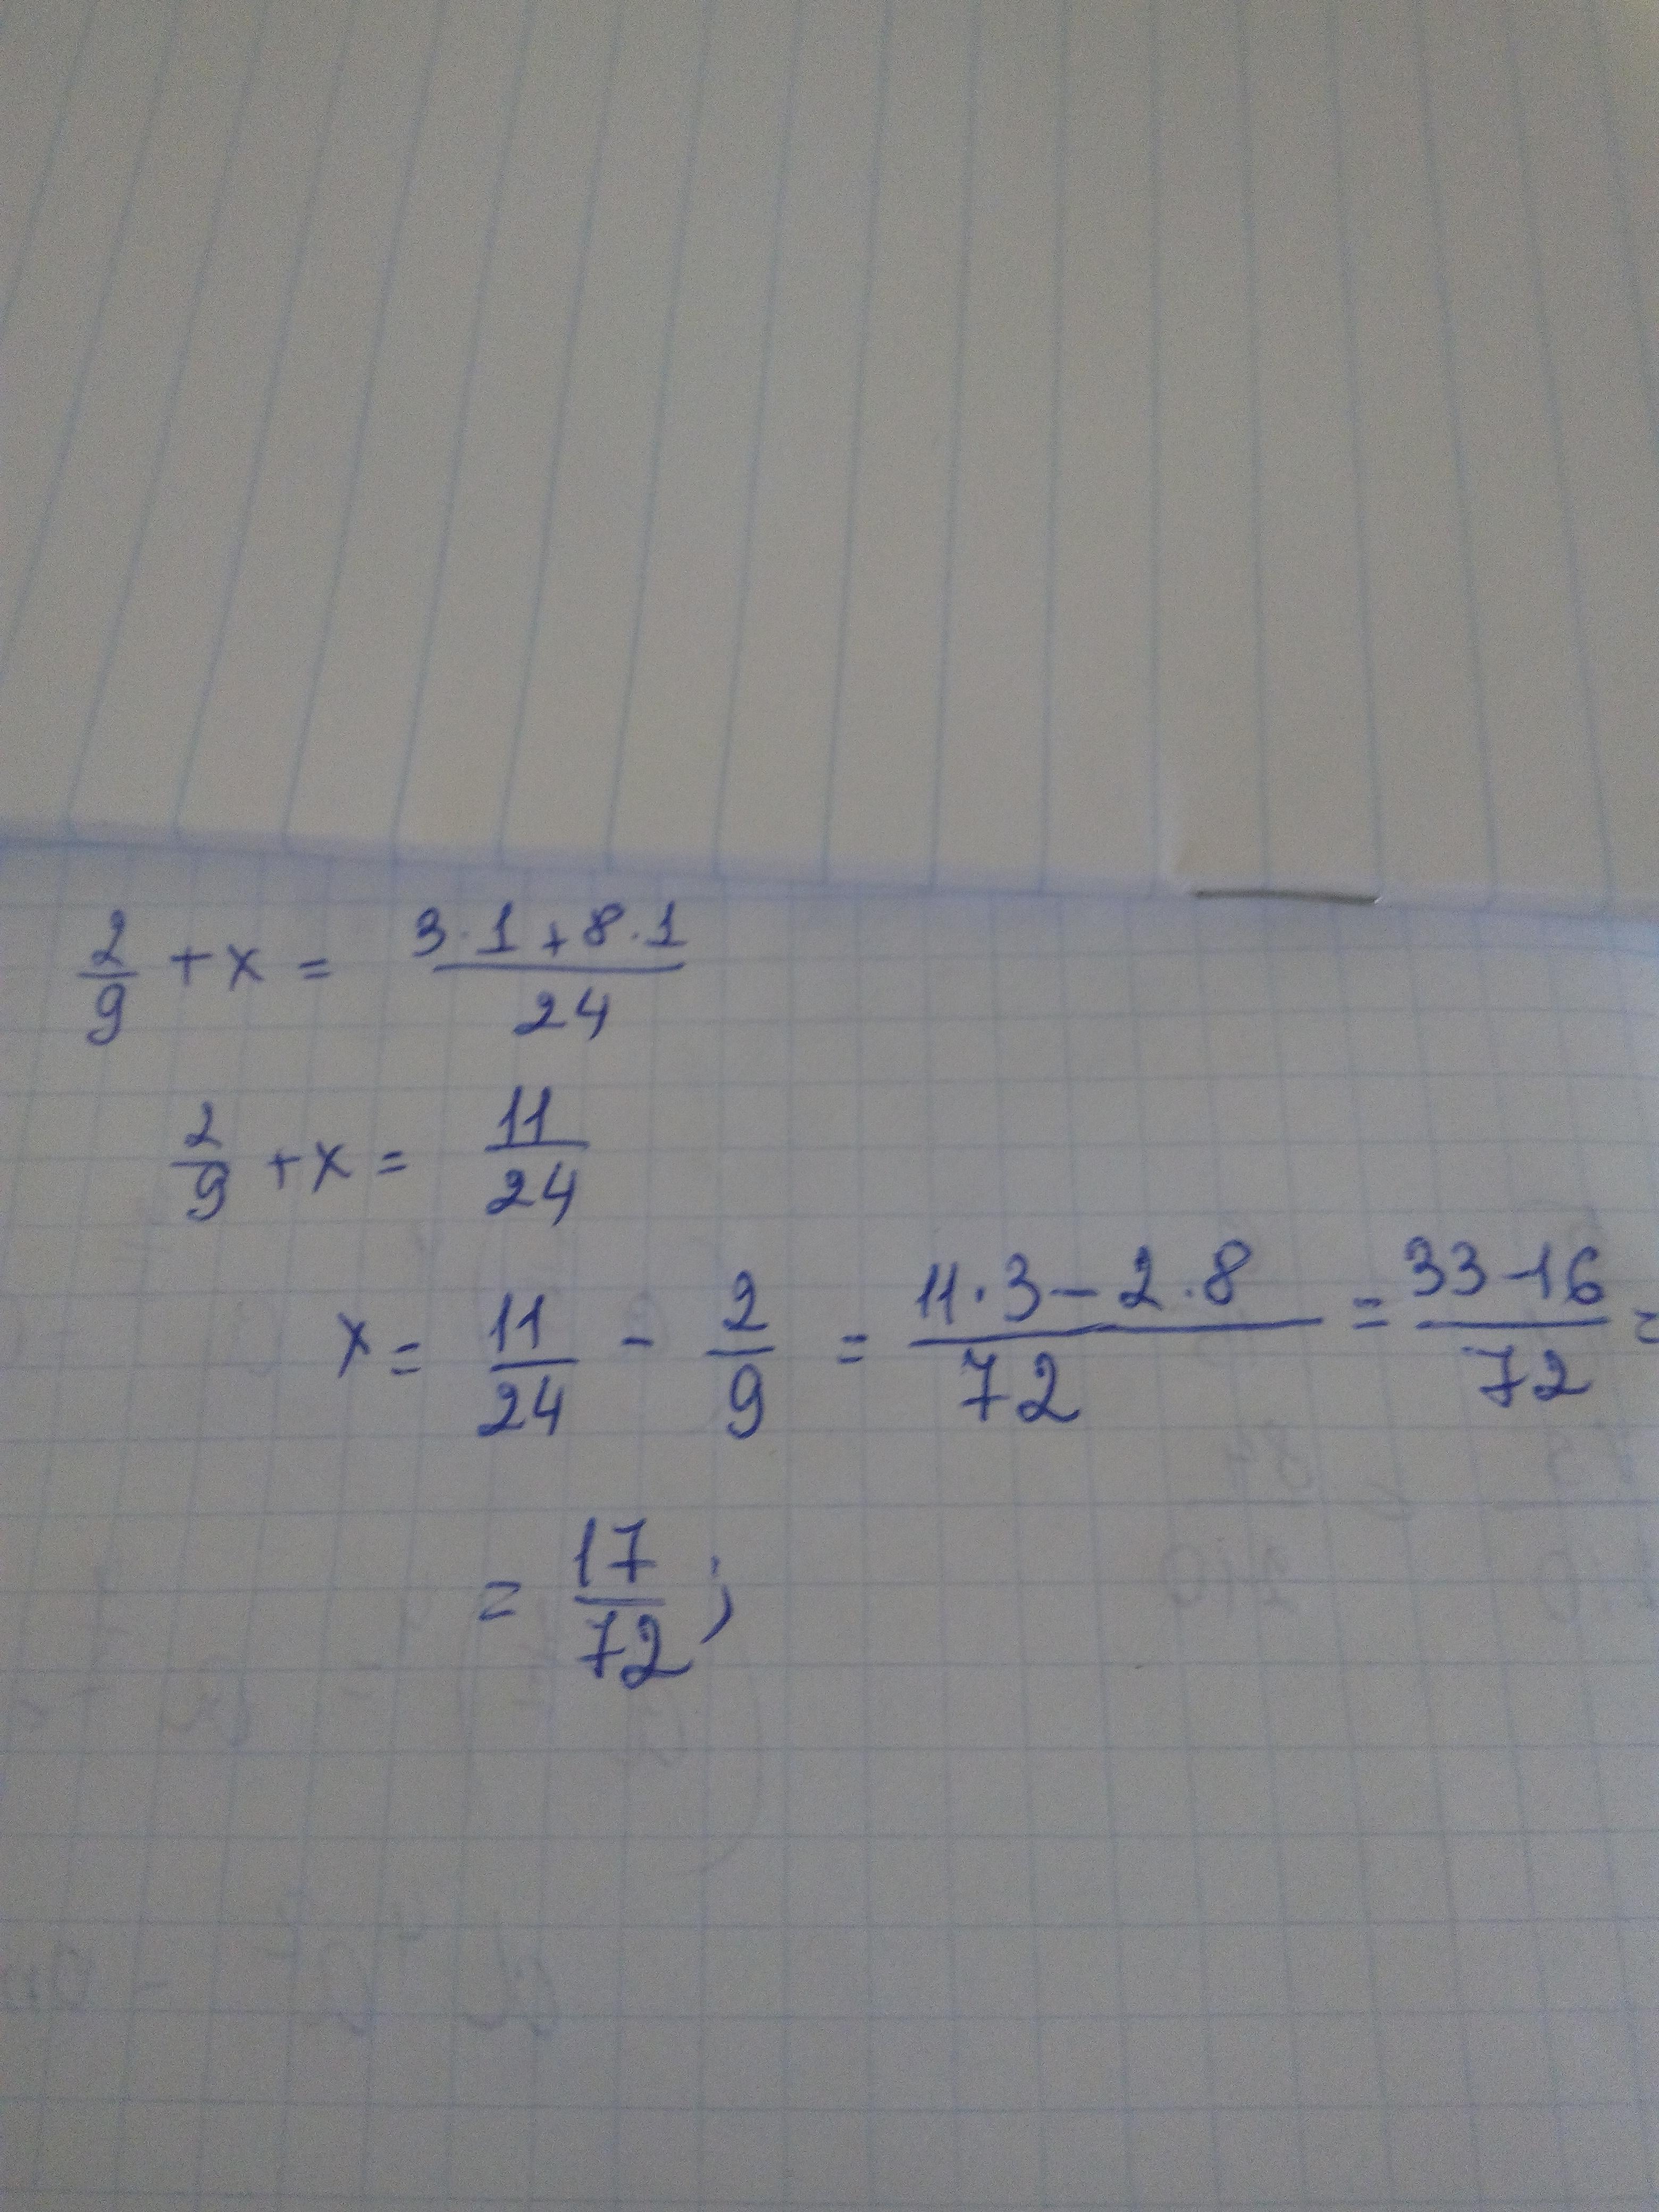 2/9 + x = (3·1+8·1)/24
2/9 + x = 11/24
x = 11/24 - 2/9 = (11·3-2·8)/72 = (33-16)/72 =
= 17/72;